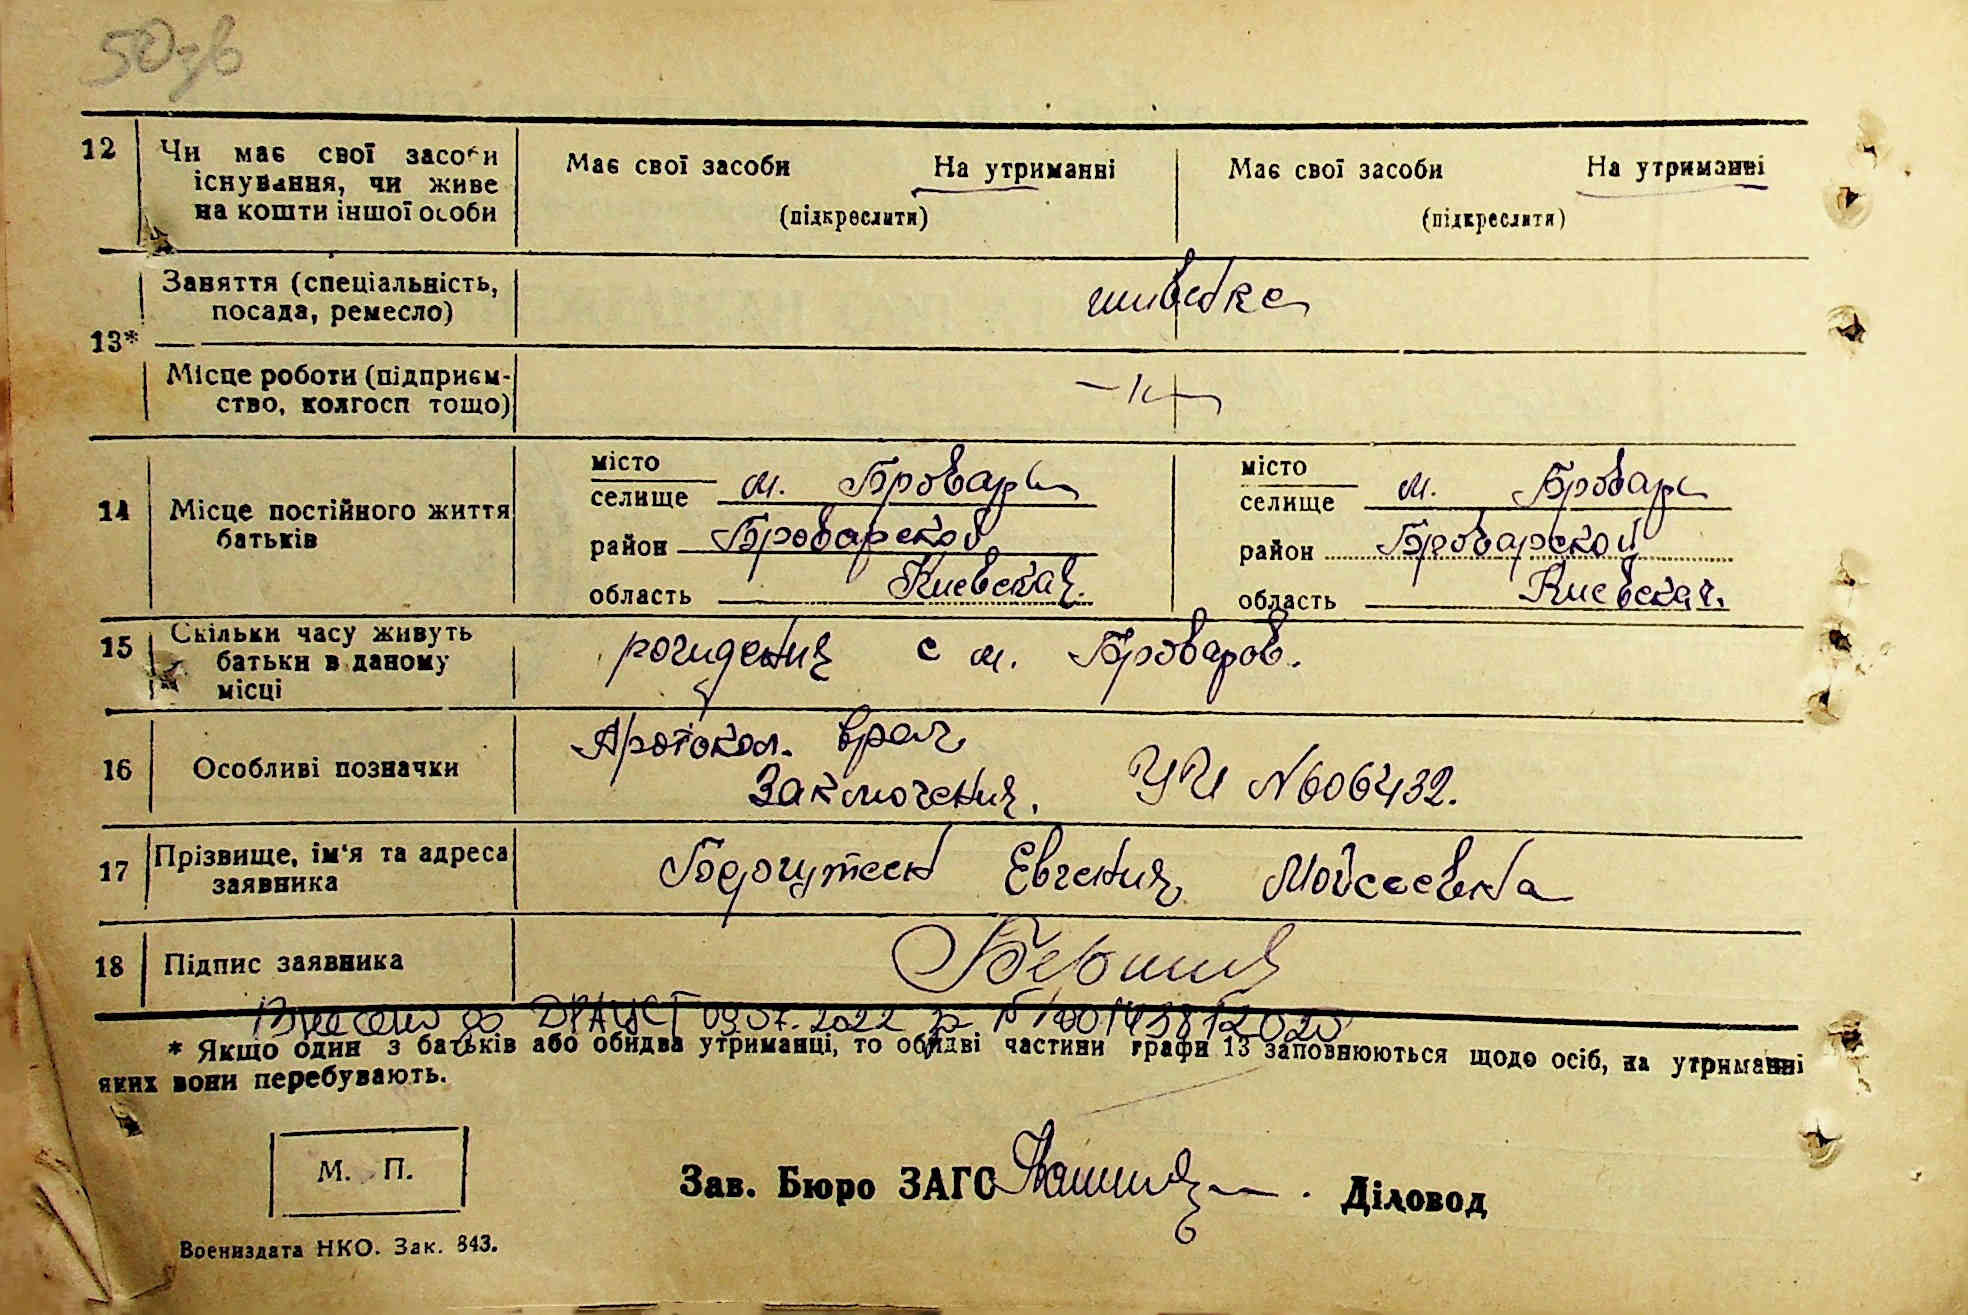 50зв
12 Чи має свої засоби Має свої засоби На утриманні Має свої засоби На утриманні
існування, чи живе
на кошти іншої особи (підкреслити) (підкреслити)
Заняття (спеціальність,
посада, ремесло) швейка
13*
Місце роботи (підприєм-
ство, колгосп тощо)
14 Місце постійного життя батьків
місто селище м. Бровары
район Броварской
область Киевская.
місто селище м. Бровары
район Броварской
область Киевская.
15 Скільки часу живуть
батьки в даному
місці
рождения с м. Броваров.
16 Особливі позначки Протокол. врач
Заключения. УИ N606432.
17 Прізвище, ім'я та адреса
заявника
Евгения Мойсеевна
18 Підпис заявника
Внесено до ДРАЦСГ 09.07.2022
* Якщо один з батьків або обидва утриманці, то обидві частини графи 13 заповнюються щодо осіб, на утриманні
яких вони перебувають.
М. П.
Зав. Бюро ЗАГС Діловод
Воениздата НКО. Зак. 843.